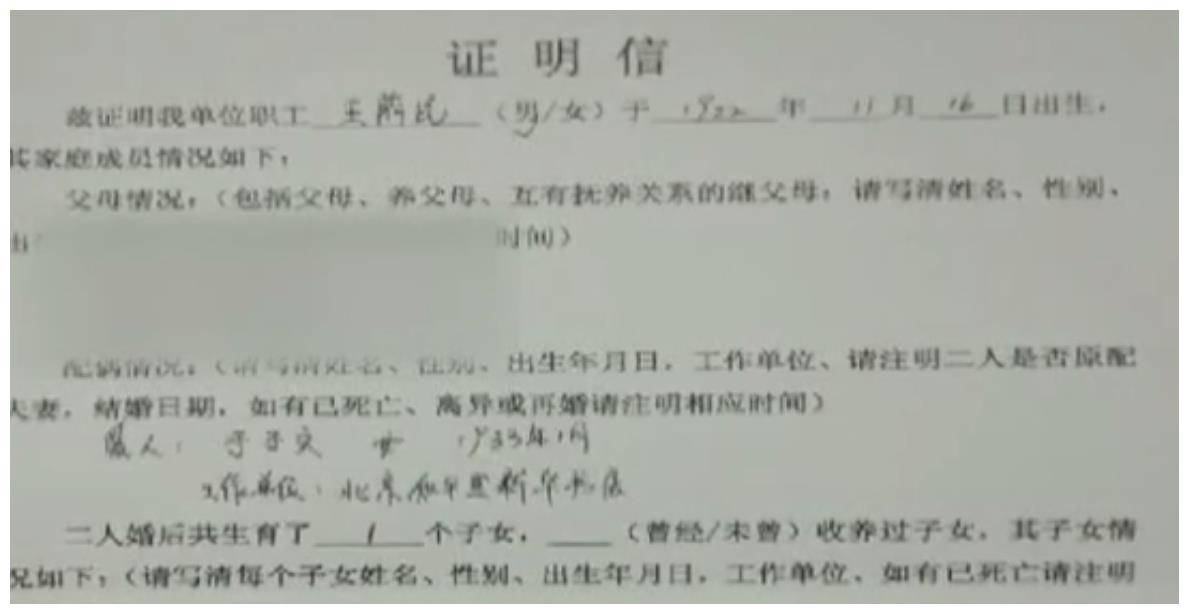 证明信
兹证明我单位职工 王蔚民 （男/女）于 1922 年 11 月 16 日出生，
其家庭成员情况如下：
父母情况：（包括父母、养父母、互有抚养关系的继父母，请写清姓名、性别、
出 时间）
配偶情况：（请写清姓名、性别、出生年月日，工作单位、请注明二人是否原配
夫妻，结婚日期，如有已死亡、离异或再婚请注明相应时间）
爱人： 女 1933年1月
工作单位：北京和平里新华书店
二人婚后共生育了 1 个子女，（曾经/未曾）收养过子女，其子女情
况如下：（请写清每个子女姓名、性别、出生年月日，工作单位、如有已死亡请注明